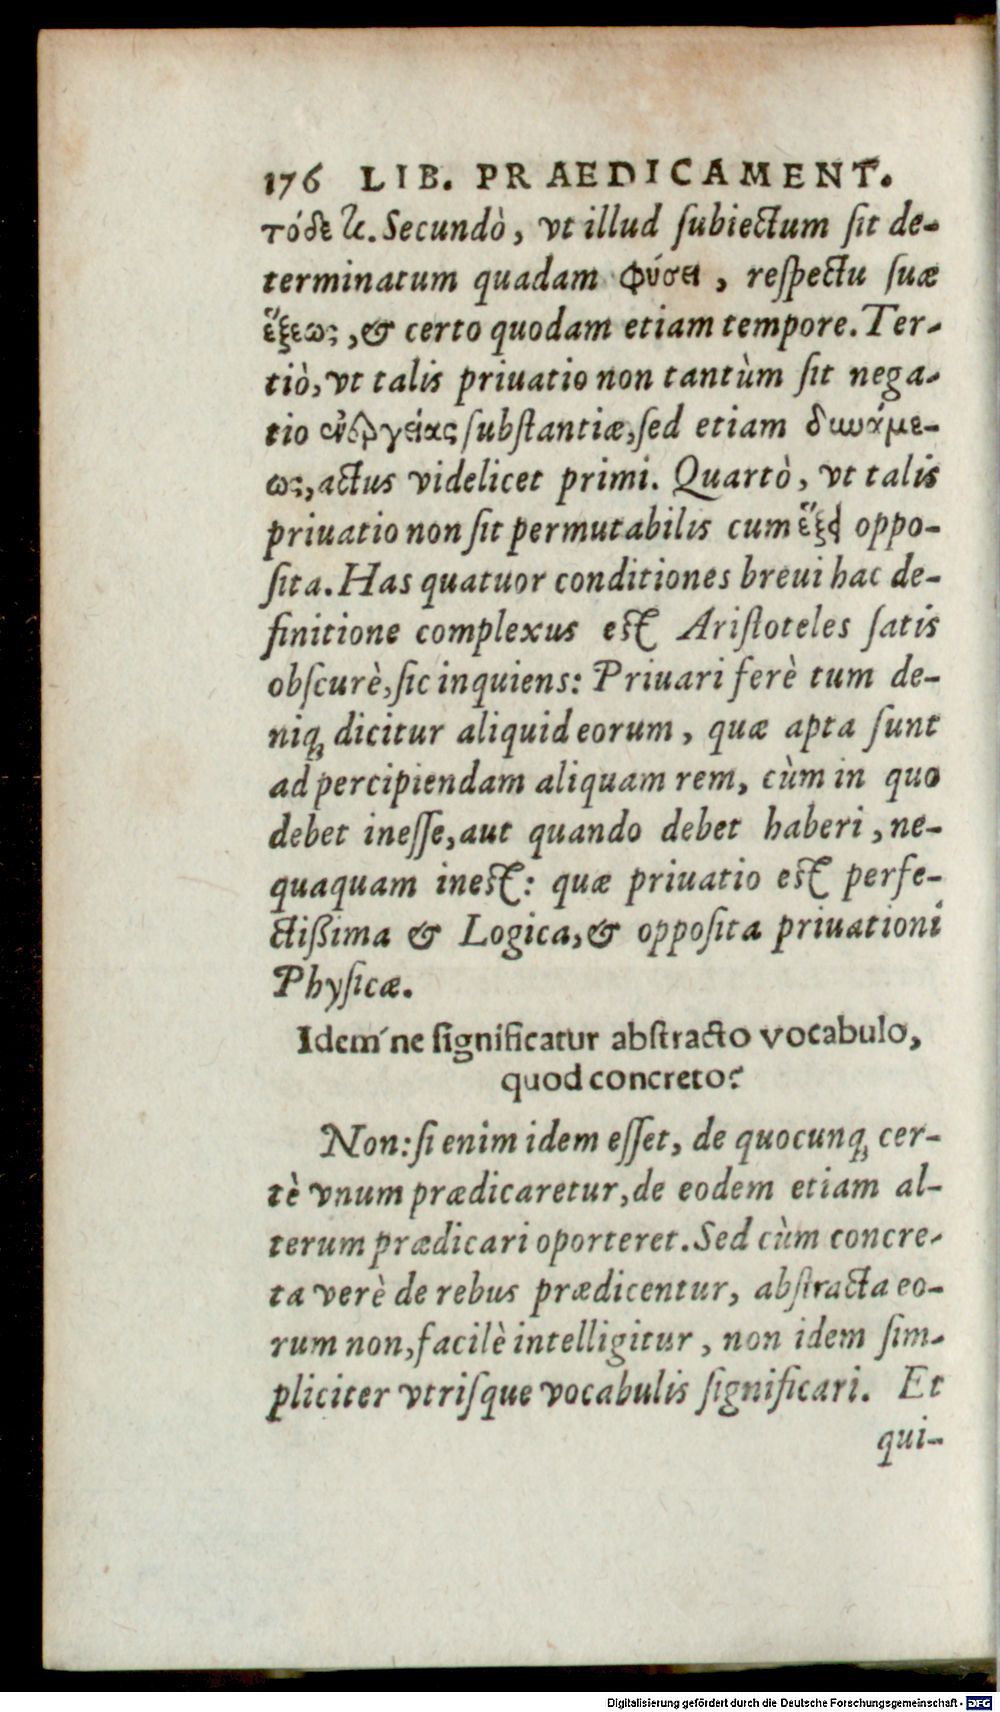 176 LIB. PRAEDICAMENT.
τόδε τὶ. Secundò, vt illud ſubiectum ſit de-
terminatum quadam φύσει, reſpectu ſuæ
ἕξεως, & certo quodam etiam tempore. Ter-
tiò, vt talis priuatio non tantùm ſit nega-
tio ἐνεργείας ſubſtantiæ, ſed etiam δυνάμε-
ως, actus videlicet primi. Quartò, vt talis
priuatio non ſit permutabilis cum ἕξει oppo-
ſita. Has quatuor conditiones breui hac de-
finitione complexus eſt Ariſtoteles ſatis
obſcurè, ſic inquiens: Priuari ferè tum de-
niqꝫ dicitur aliquid eorum, quæ apta ſunt
ad percipiendam aliquam rem, cùm in quo
debet ineſſe, aut quando debet haberi, ne-
quaquam ineſt: quæ priuatio eſt perfe-
ctißima & Logica, & oppoſita priuationi
Phyſicæ.
Idem´ne ſignificatur abſtracto vocabulo,
quod concreto?
Non: ſi enim idem eſſet, de quocunqꝫ cer-
tè vnum prædicaretur, de eodem etiam al-
terum prædicari oporteret. Sed cùm concre-
ta verè de rebus prædicentur, abſtracta eo-
rum non, facilè intelligitur, non idem ſim-
pliciter vtriſque vocabulis ſignificari. Et
qui-
Digitalisierung gefördert durch die Deutsche Forschungsgemeinschaft - DFG